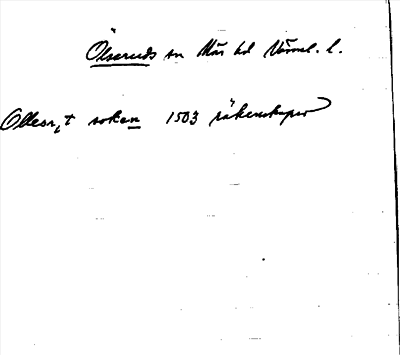 Ölseruds sn Näs hd Värml. l.
Ollesryt soken 1503 räkenskaper